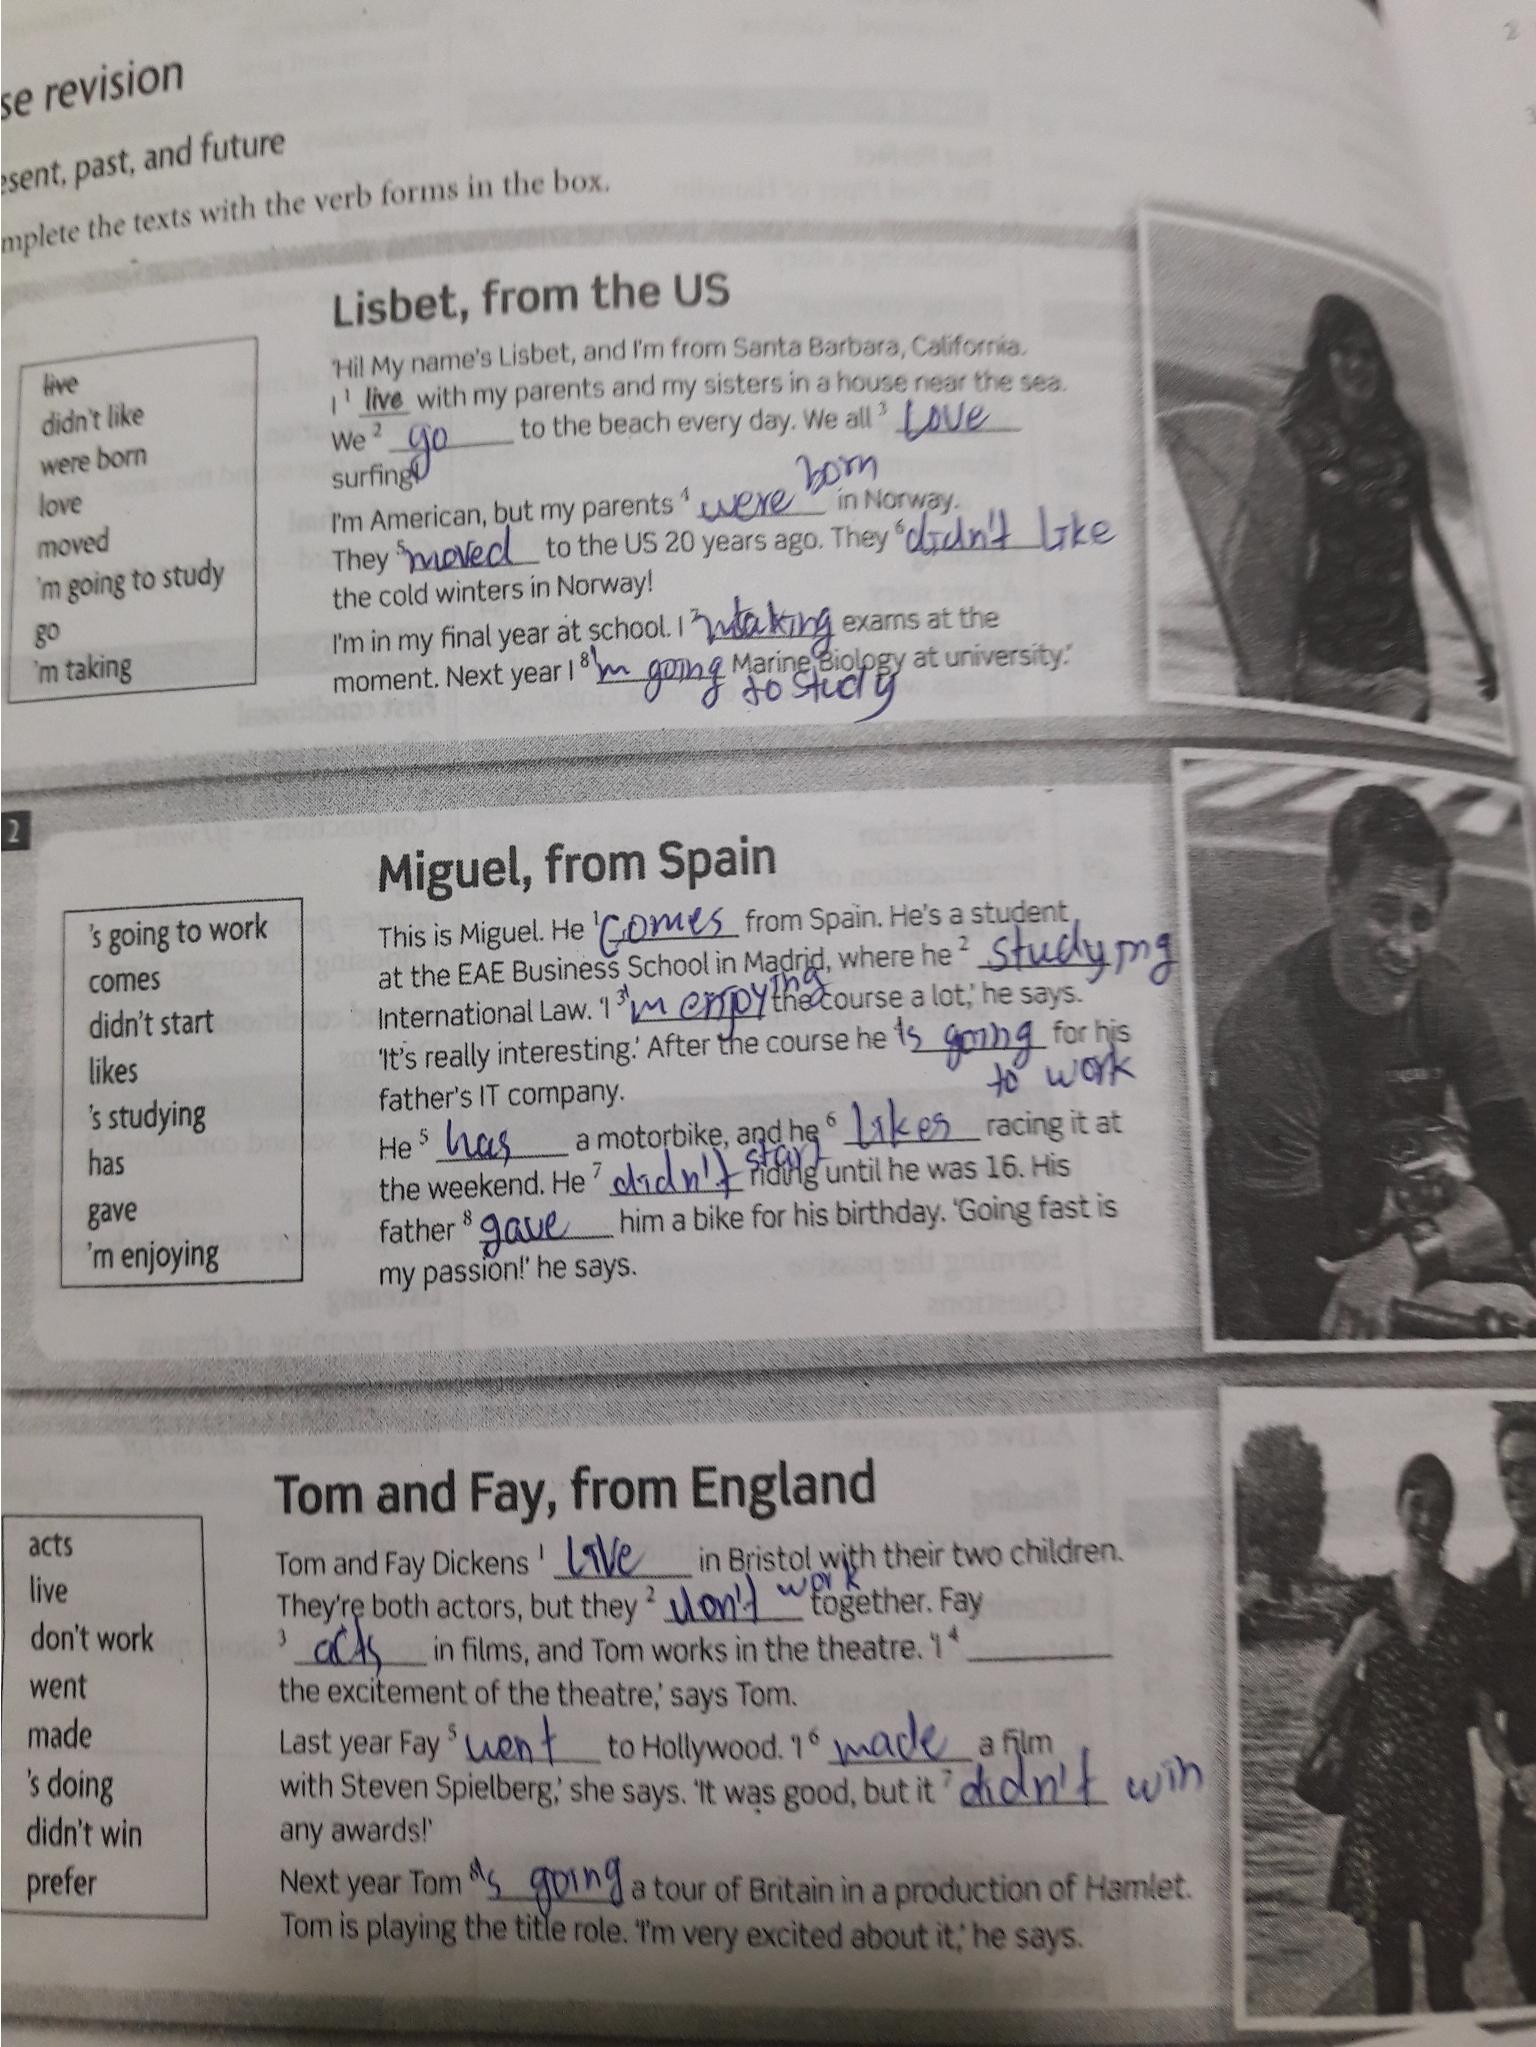 se revision
esent, past, and future
mplete the texts with the verb forms in the box.
Lisbet, from the US
live
didn't like
were born
love
moved
'm going to study
go
'm taking
'Hi! My name's Lisbet, and I'm from Santa Barbara, California.
I 1 live with my parents and my sisters in a house near the sea.
We 2 go to the beach every day. We all 3 Love
surfing!
I'm American, but my parents 4 were born in Norway.
They 5 moved to the US 20 years ago. They 6 didn't like
the cold winters in Norway!
I'm in my final year at school. I 7 'm taking exams at the
moment. Next year I 8 'm going to study Marine Biology at university.'
2
Miguel, from Spain
's going to work
comes
didn't start
likes
's studying
has
gave
'm enjoying
This is Miguel. He 1 comes from Spain. He's a student
at the EAE Business School in Madrid, where he 2 studying
International Law. 'I 3 'm enjoying the course a lot,' he says.
'It's really interesting.' After the course he 's going to work for his
father's IT company.
He 5 has a motorbike, and he 6 likes racing it at
the weekend. He 7 didn't start riding until he was 16. His
father 8 gave him a bike for his birthday. 'Going fast is
my passion!' he says.
Tom and Fay, from England
acts
live
don't work
went
made
's doing
didn't win
prefer
Tom and Fay Dickens 1 live in Bristol with their two children.
They're both actors, but they 2 don't work together. Fay
3 acts in films, and Tom works in the theatre. 'I 4
the excitement of the theatre,' says Tom.
Last year Fay 5 went to Hollywood. 'I 6 made a film
with Steven Spielberg,' she says. 'It was good, but it 7 didn't win
any awards!'
Next year Tom 8 's going a tour of Britain in a production of Hamlet.
Tom is playing the title role. 'I'm very excited about it,' he says.